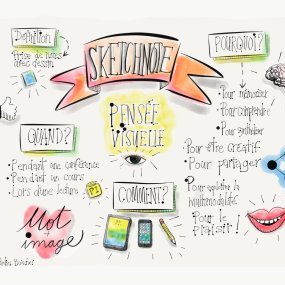 Définition
Prise de notes
avec dessin
SKETCHNOTE
PENSÉE
VISUELLE
QUAND?
• Pendant une conférence
• Pendant un cours
• Lors d'une lecture
Mot
+
image
COMMENT?
POURQUOI?
• Pour mémoriser
• Pour comprendre
• Pour
• Pour être créatif
• Pour partager
• Pour
• Pour le
plaisir!